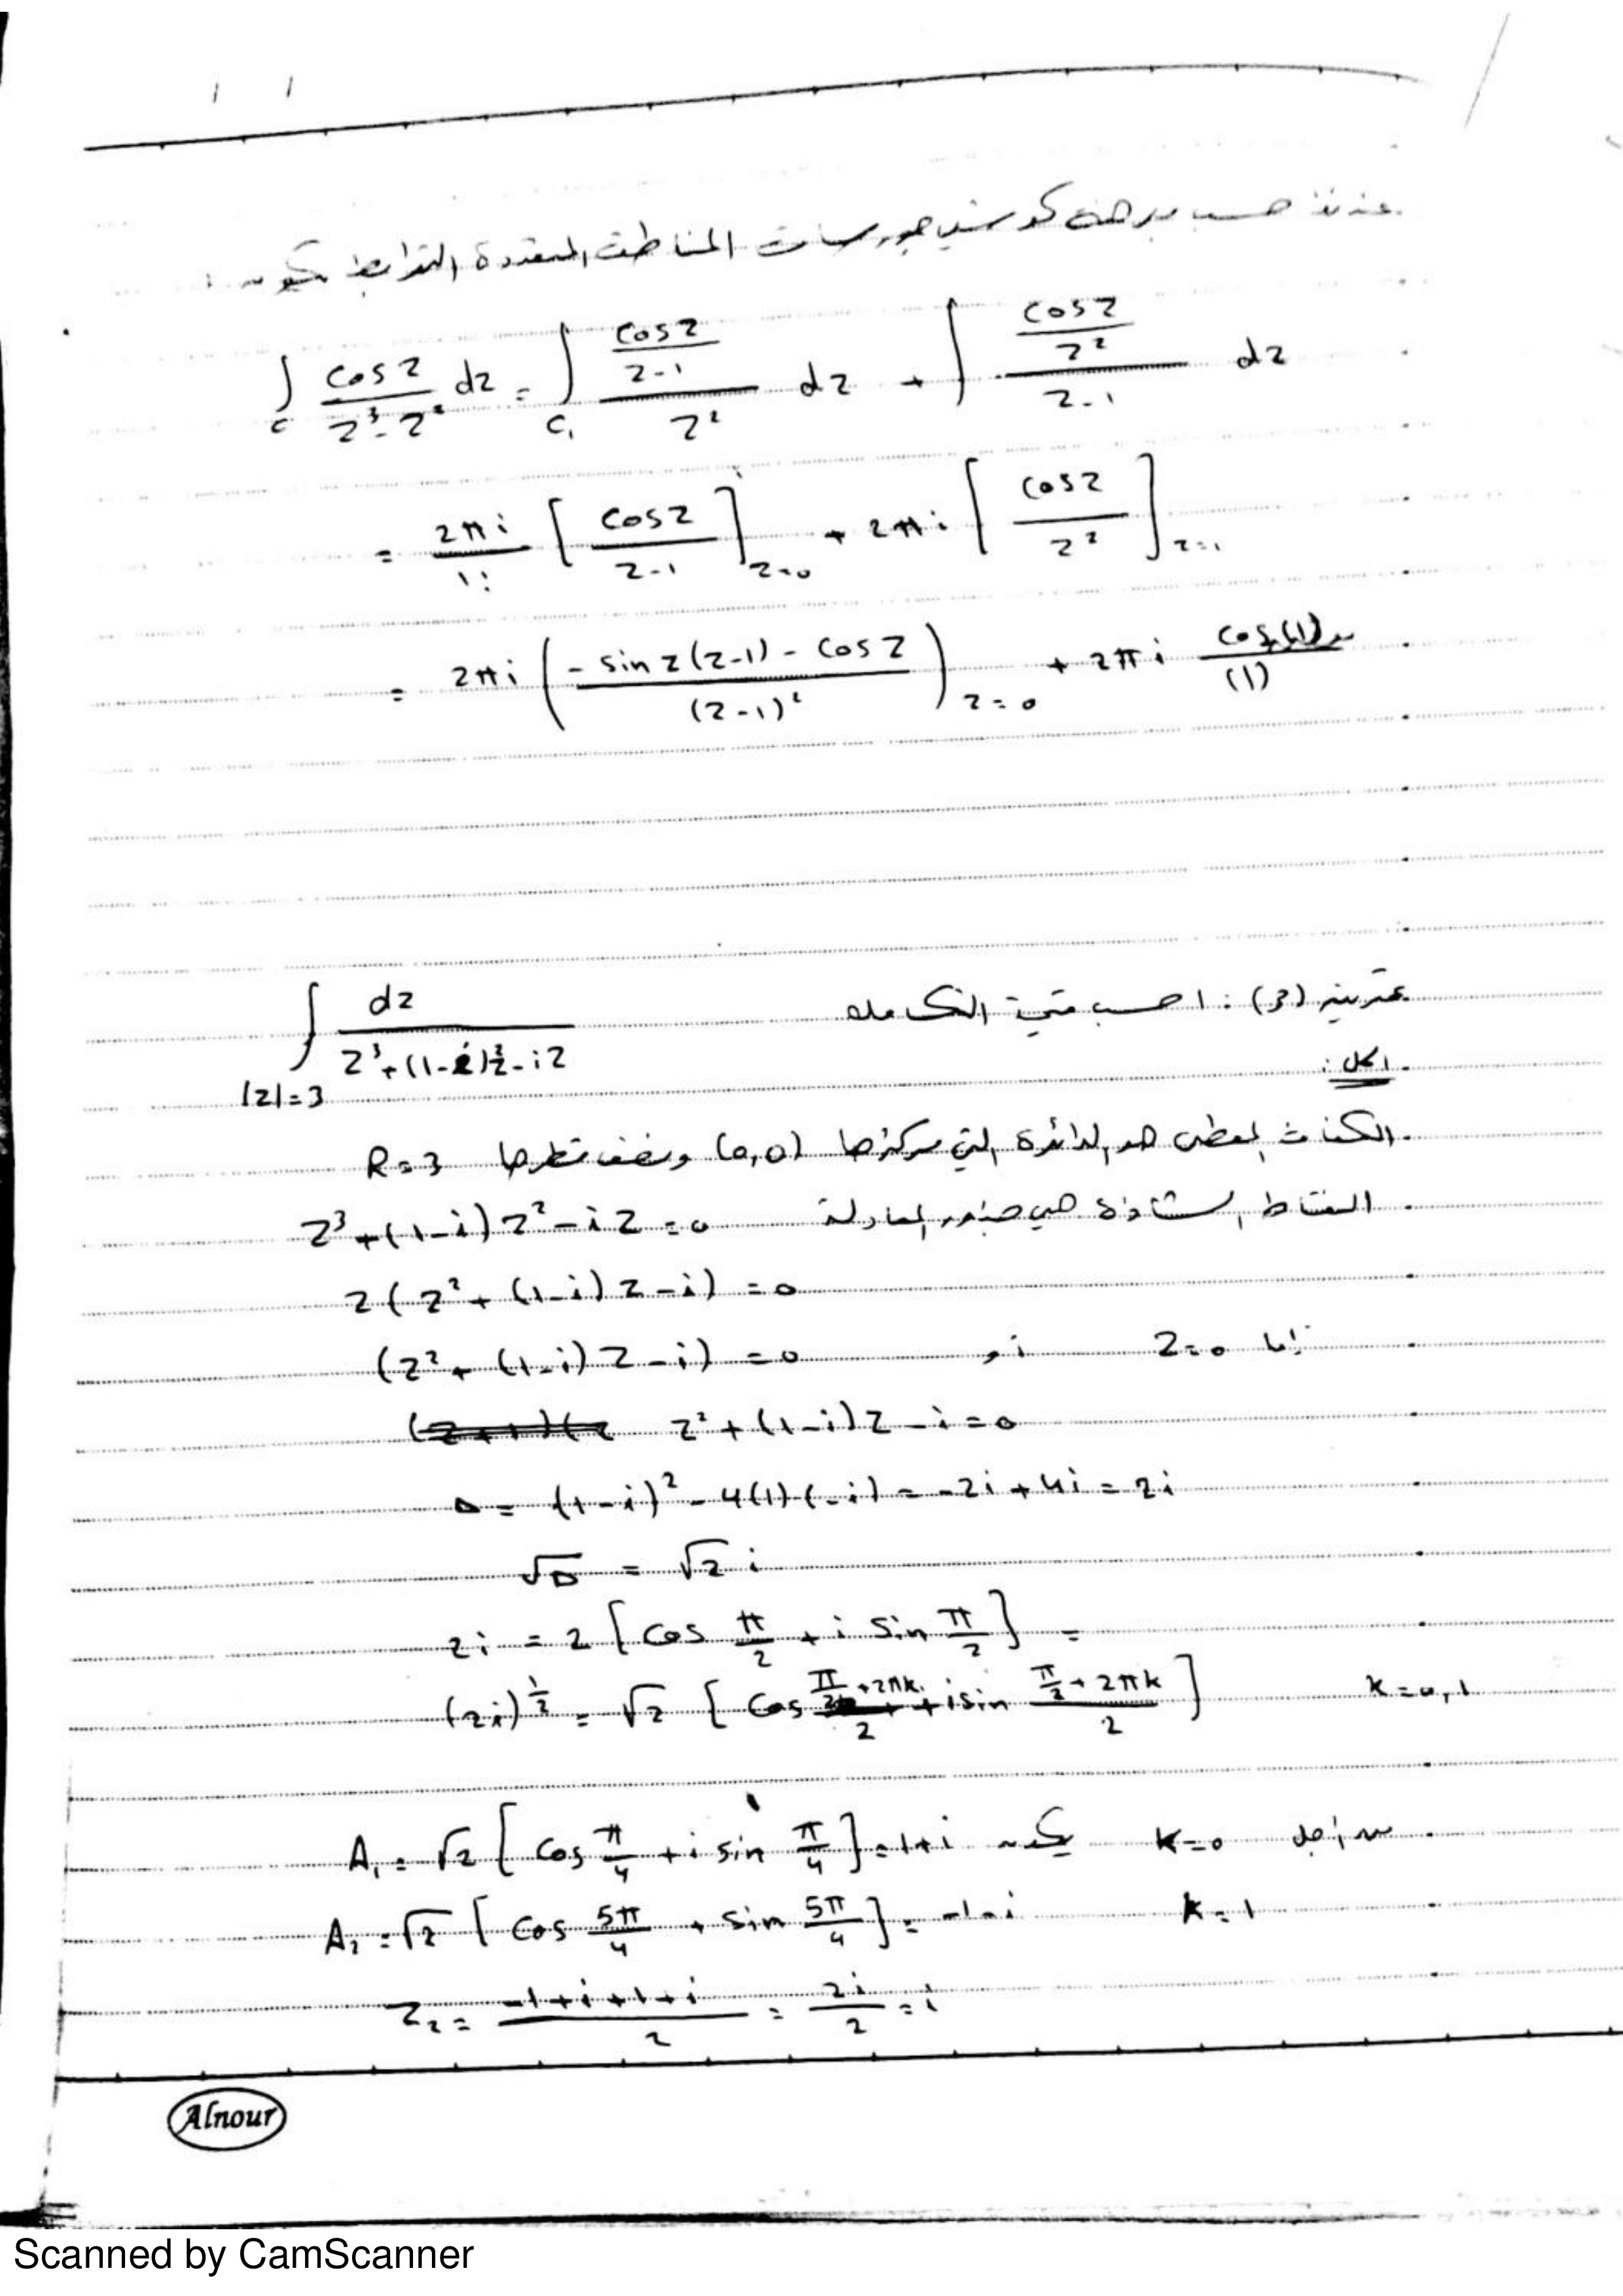 عندئذ حسب مبرهنة كوشي جورسات المناطق المتعددة الترابط يكون :
∫_C cos z / (z³ - z²) dz = ∫_C₁ (cos z / (z-1)) / z² dz + ∫ (cos z / z²) / (z-1) dz
= 2πi / 1! [cos z / (z-1)]'_{z=0} + 2πi [cos z / z²]_{z=1}
= 2πi ((-sin z (z-1) - cos z) / (z-1)²)_{z=0} + 2πi cos(1) / (1)
تمرين (3) : احسب قيمة التكامل ∫_{|z|=3} dz / (z³ + (1-i)z² - iz)
الحل :
الكفاف المعطى هو الدائرة التي مركزها (0,0) ونصف قطرها R = 3
النقاط الشاذة هي جذور المعادلة z³ + (1-i)z² - iz = 0
z(z² + (1-i)z - i) = 0
إما z = 0 أو (z² + (1-i)z - i) = 0
z² + (1-i)z - i = 0
Δ = (1-i)² - 4(1)(-i) = -2i + 4i = 2i
√Δ = √2 i
2i = 2 [cos π/2 + i sin π/2] =
(2i)^{1/2} = √2 [cos (π/2 + 2πk)/2 + i sin (π/2 + 2πk)/2] k = 0, 1
من أجل k = 0 يكون A₁ = √2 [cos π/4 + i sin π/4] = 1+i
k = 1 A₂ = √2 [cos 5π/4 + sin 5π/4] = -1-i
z₂ = (-1+i+1+i) / 2 = 2i / 2 = i
Alnour
Scanned by CamScanner